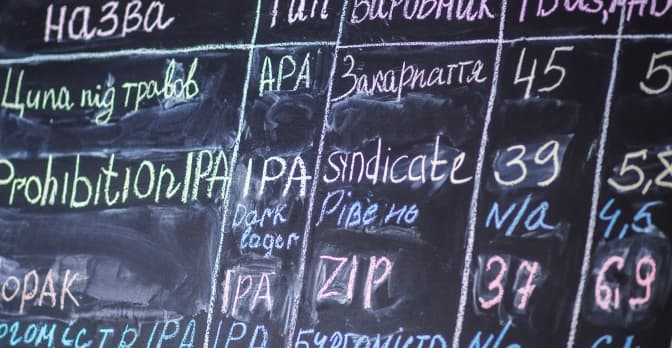 назва Тип Виробник
Ципа під травов APA Закарпаття 45 5
Prohibition IPA IPA syndicate 39 5,8
Dark lager Рівень N/a 4,5
ОРАК IPA ZIP 37 6,9
IPA IPA N/a